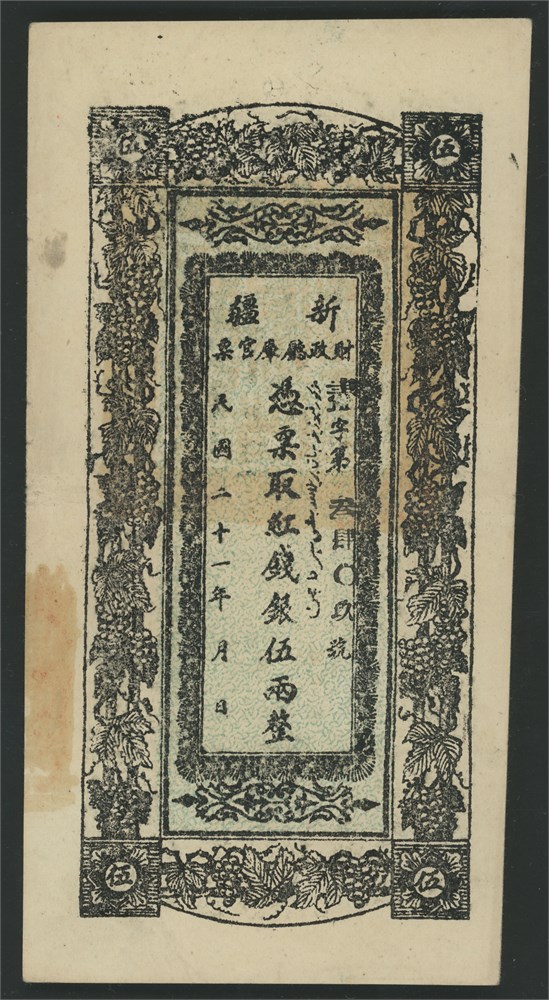 伍
伍
新疆
財政廳庫官票
字第 叁肆〇玖號
憑票取紅錢銀伍兩整
民國二十一年 月 日
伍
伍